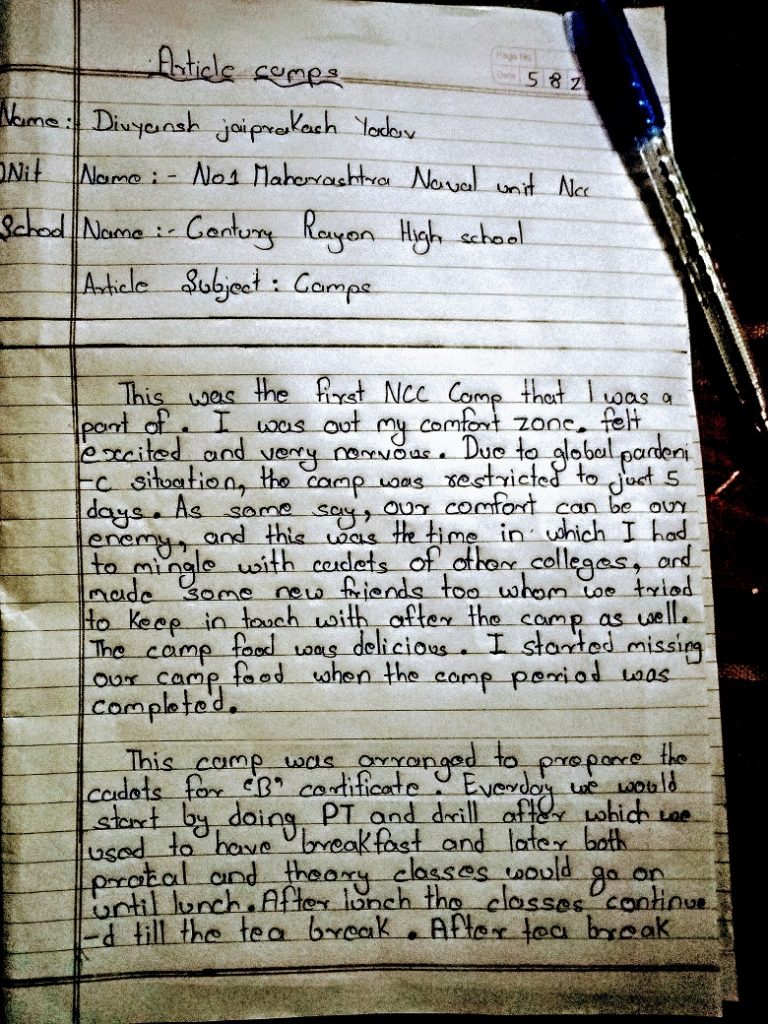 Article camps
Page No
Date 5 8 2
Name:- Divyansh jaiprakash Yadav
UNit Name:- No1 Maharashtra Naval unit Ncc
School Name:- Century Rayon High school
Article Subject: Camps
This was the first NCC Camp that I was a
part of. I was out my comfort zone. felt
excited and very nervous. Due to global pandemi
-c situation, the camp was restricted to just 5
days. As some say, our comfort can be our
enemy, and this was the time in which I had
to mingle with cadets of other colleges, and
made some new friends too whom we tried
to keep in touch with after the camp as well.
The camp food was delicious. I started missing
our camp food when the camp period was
completed.
This camp was arranged to prepare the
cadets for "B" certificate. Everday we would
start by doing PT and drill after which we
used to have breakfast and later both
and theory classes would go on
until lunch. After lunch the classes continue
-d till the tea break. After tea break